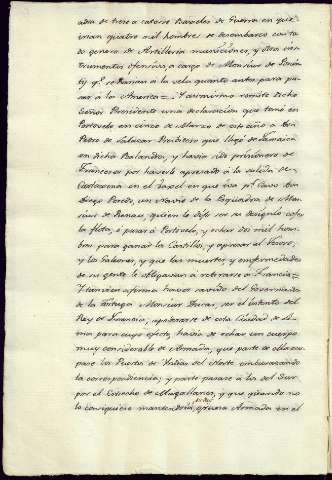 adra de trese a catorse Baxeles de Guerra en que
irian quatro mil hombres de desembarco con to
do genero de Artilleria municiones, y otros ins
trumentos ofensivos a cargo de Monsiur de
ty qe. se harian a la vela quanto antes para pa
sar á la America = Y asimismo remite dicho
Señor Presidente una declaracion que tomó en
Portovelo en cinco de Marzo de este año a Don
Pedro de Salazar Presbitero que llegó de Jamaica
en dicha Balandra, y havia sido prisionero de
Franceses por haverle apresado á la salida de
Cartaxena en el Baxel en que iva pr. Cavo Don
Diego Peredo, un Navio de la Esquadra de Mon
siur de Renaes, quien le dijo ser su designio coger
la flota, o pasar á Portovelo, y echar dos mil hom
bres para ganar los Castillos, y apresar el Tesoro,
y los Galeones, y que las muertes y enfermedades
de su gente le obligavan á retirarse a Francia =
Y tambien afirma haver savido del Governador
de la Monsiur Ducas, ser el intento del
Rey de Francia, apoderarse de esta Ciudad de Li
ma para cuyo efecto, havia de echar un cuerpo
muy considerable de Armada, que parte de ella ocu
pase los Puertos de Yndias del Norte embarazando
la correspondiencia, y parte pasase á la del Sur
por el Estrecho de Magallanes, y que quando no
lo consiguiese mantendria gruesa Armada en el